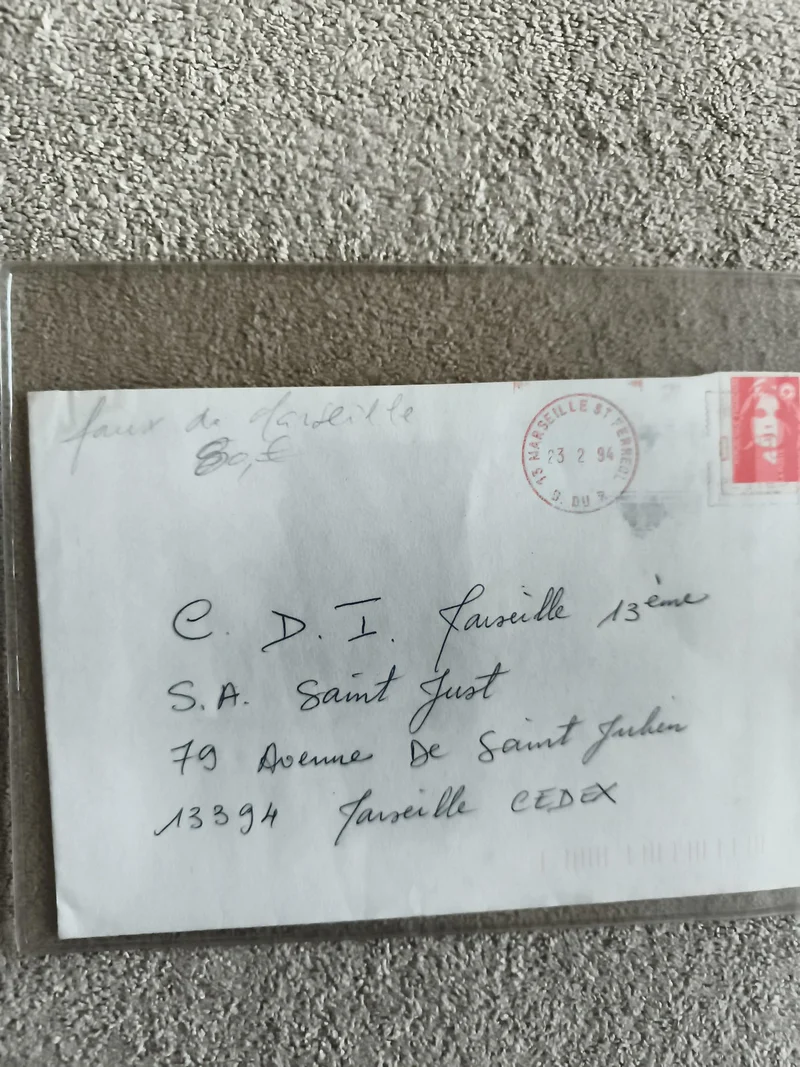 faux de Marseille
80,€
13 MARSEILLE ST FERREOL
23 2 94
B. DU R.
C. D. I. Marseille 13ème
S.A. Saint Just
79 Avenue De Saint Julien
13394 Marseille CEDEX